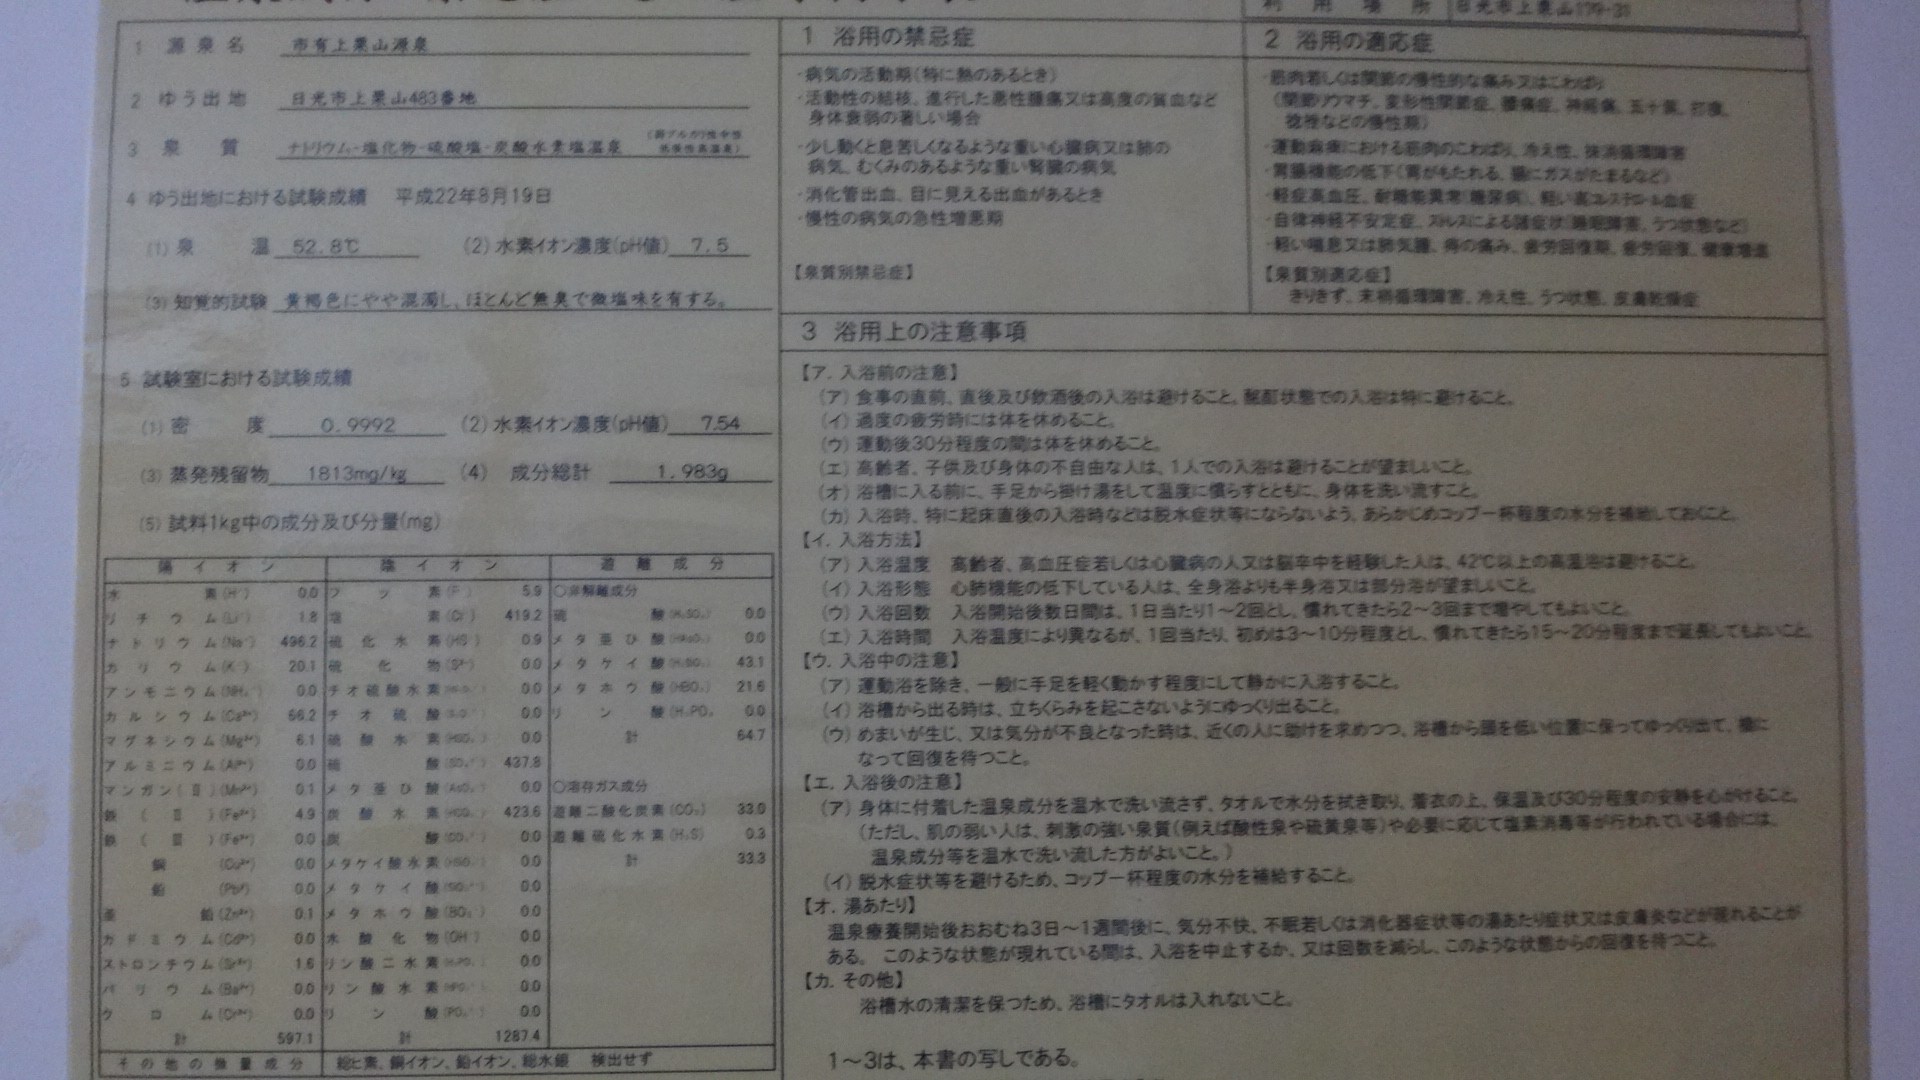 利用場所 日光市上栗山179-31
1 源泉名 市有上栗山源泉
2 ゆう出地 日光市上栗山483番地
3 泉質 ナトリウム-塩化物-硫酸塩・炭酸水素塩温泉 (弱アルカリ性中性 低張性高温泉)
4 ゆう出地における試験成績 平成22年8月19日
(1) 泉温 52.8℃ (2) 水素イオン濃度(pH値) 7.5
(3) 知覚的試験 黄褐色にやや混濁し、ほとんど無臭で微塩味を有する。
5 試験室における試験成績
(1) 密度 0.9992 (2) 水素イオン濃度(pH値) 7.54
(3) 蒸発残留物 1813mg/kg (4) 成分総計 1.983g
(5) 試料1kg中の成分及び分量(mg)
陽イオン 陰イオン 遊離成分
水素(H⁺) 0.0 フッ素(F⁻) 5.9 〇非解離成分
リチウム(Li⁺) 1.8 塩素(Cl⁻) 419.2 硫酸(H₂SO₄) 0.0
ナトリウム(Na⁺) 496.2 硫化水素(HS⁻) 0.9 メタ亜ひ酸(HAsO₂) 0.0
カリウム(K⁺) 20.1 硫化物(S²⁻) 0.0 メタケイ酸(H₂SiO₃) 43.1
アンモニウム(NH₄⁺) 0.0 チオ硫酸水素 0.0 メタホウ酸(HBO₂) 21.6
カルシウム(Ca²⁺) 66.2 チオ硫酸 0.0 リン酸(H₃PO₄ 0.0
マグネシウム(Mg²⁺) 6.1 硫酸水素(HSO₄⁻) 0.0 計 64.7
アルミニウム(Al³⁺) 0.0 硫酸(SO₄²⁻) 437.8
マンガン(Ⅱ)(Mn²⁺) 0.1 メタ亜ひ酸(AsO₂⁻) 0.0 〇溶存ガス成分
鉄(Ⅱ)(Fe²⁺) 4.9 炭酸水素(HCO₃⁻) 423.6 遊離二酸化炭素(CO₂) 33.0
鉄(Ⅲ)(Fe³⁺) 0.0 炭酸(CO₃²⁻) 0.0 遊離硫化水素(H₂S) 0.3
銅(Cu²⁺) 0.0 メタケイ酸水素 0.0 計 33.3
鉛(Pb²⁺) 0.0 メタケイ酸 0.0
亜鉛(Zn²⁺) 0.1 メタホウ酸(BO₂⁻) 0.0
カドミウム(Cd²⁺) 0.0 水酸化物(OH⁻) 0.0
ストロンチウム(Sr²⁺) 1.6 リン酸二水素 0.0
バリウム(Ba²⁺) 0.0 リン酸水素 0.0
クロム(Cr³⁺) 0.0 リン酸(PO₄³⁻) 0.0
計 597.1 計 1287.4
その他の微量成分 総ヒ素、銅イオン、鉛イオン、総水銀 検出せず
1 浴用の禁忌症
・病気の活動期(特に熱のあるとき)
・活動性の結核、進行した悪性腫瘍又は高度の貧血など
身体衰弱の著しい場合
・少し動くと息苦しくなるような重い心臓病又は肺の
病気、むくみのあるような重い腎臓の病気
・消化管出血、目に見える出血があるとき
・慢性の病気の急性増悪期
【泉質別禁忌症】
2 浴用の適応症
・筋肉若しくは関節の慢性的な痛み又はこわばり
(関節リウマチ、変形性関節症、腰痛症、神経痛、五十肩、打撲、
捻挫などの慢性期)
・運動麻痺における筋肉のこわばり、冷え性、抹消循環障害
・胃腸機能の低下(胃がもたれる、腸にガスがたまるなど)
・軽症高血圧、耐糖能異常(糖尿病)、軽い高コレステロール血症
・自律神経不安定症、ストレスによる諸症状(睡眠障害、うつ状態など)
・軽い喘息又は肺気腫、痔の痛み、疲労回復期、疲労回復、健康増進
【泉質別適応症】
きりきず、末梢循環障害、冷え性、うつ状態、皮膚乾燥症
3 浴用上の注意事項
【ア. 入浴前の注意】
(ア) 食事の直前、直後及び飲酒後の入浴は避けること。酩酊状態での入浴は特に避けること。
(イ) 過度の疲労時には体を休めること。
(ウ) 運動後30分程度の間は体を休めること。
(エ) 高齢者、子供及び身体の不自由な人は、1人での入浴は避けることが望ましいこと。
(オ) 浴槽に入る前に、手足から掛け湯をして温度に慣らすとともに、身体を洗い流すこと。
(カ) 入浴時、特に起床直後の入浴時などは脱水症状等にならないよう、あらかじめコップ一杯程度の水分を補給しておくこと。
【イ. 入浴方法】
(ア) 入浴温度 高齢者、高血圧症若しくは心臓病の人又は脳卒中を経験した人は、42℃以上の高温浴は避けること。
(イ) 入浴形態 心肺機能の低下している人は、全身浴よりも半身浴又は部分浴が望ましいこと。
(ウ) 入浴回数 入浴開始後数日間は、1日当たり1~2回とし、慣れてきたら2~3回まで増やしてもよいこと。
(エ) 入浴時間 入浴温度により異なるが、1回当たり、初めは3~10分程度とし、慣れてきたら15~20分程度まで延長してもよいこと。
【ウ. 入浴中の注意】
(ア) 運動浴を除き、一般に手足を軽く動かす程度にして静かに入浴すること。
(イ) 浴槽から出る時は、立ちくらみを起こさないようにゆっくり出ること。
(ウ) めまいが生じ、又は気分が不良となった時は、近くの人に助けを求めつつ、浴槽から頭を低い位置に保ってゆっくり出て、横に
なって回復を待つこと。
【エ. 入浴後の注意】
(ア) 身体に付着した温泉成分を温水で洗い流さず、タオルで水分を拭き取り、着衣の上、保温及び30分程度の安静を心がけること。
(ただし、肌の弱い人は、刺激の強い泉質(例えば酸性泉や硫黄泉等)や必要に応じて塩素消毒等が行われている場合には、
温泉成分等を温水で洗い流した方がよいこと。)
(イ) 脱水症状等を避けるため、コップ一杯程度の水分を補給すること。
【オ. 湯あたり】
温泉療養開始後おおむね3日~1週間後に、気分不快、不眠若しくは消化器症状等の湯あたり症状又は皮膚炎などが現れることが
ある。 このような状態が現れている間は、入浴を中止するか、又は回数を減らし、このような状態からの回復を待つこと。
【カ. その他】
浴槽水の清潔を保つため、浴槽にタオルは入れないこと。
1~3は、本書の写しである。